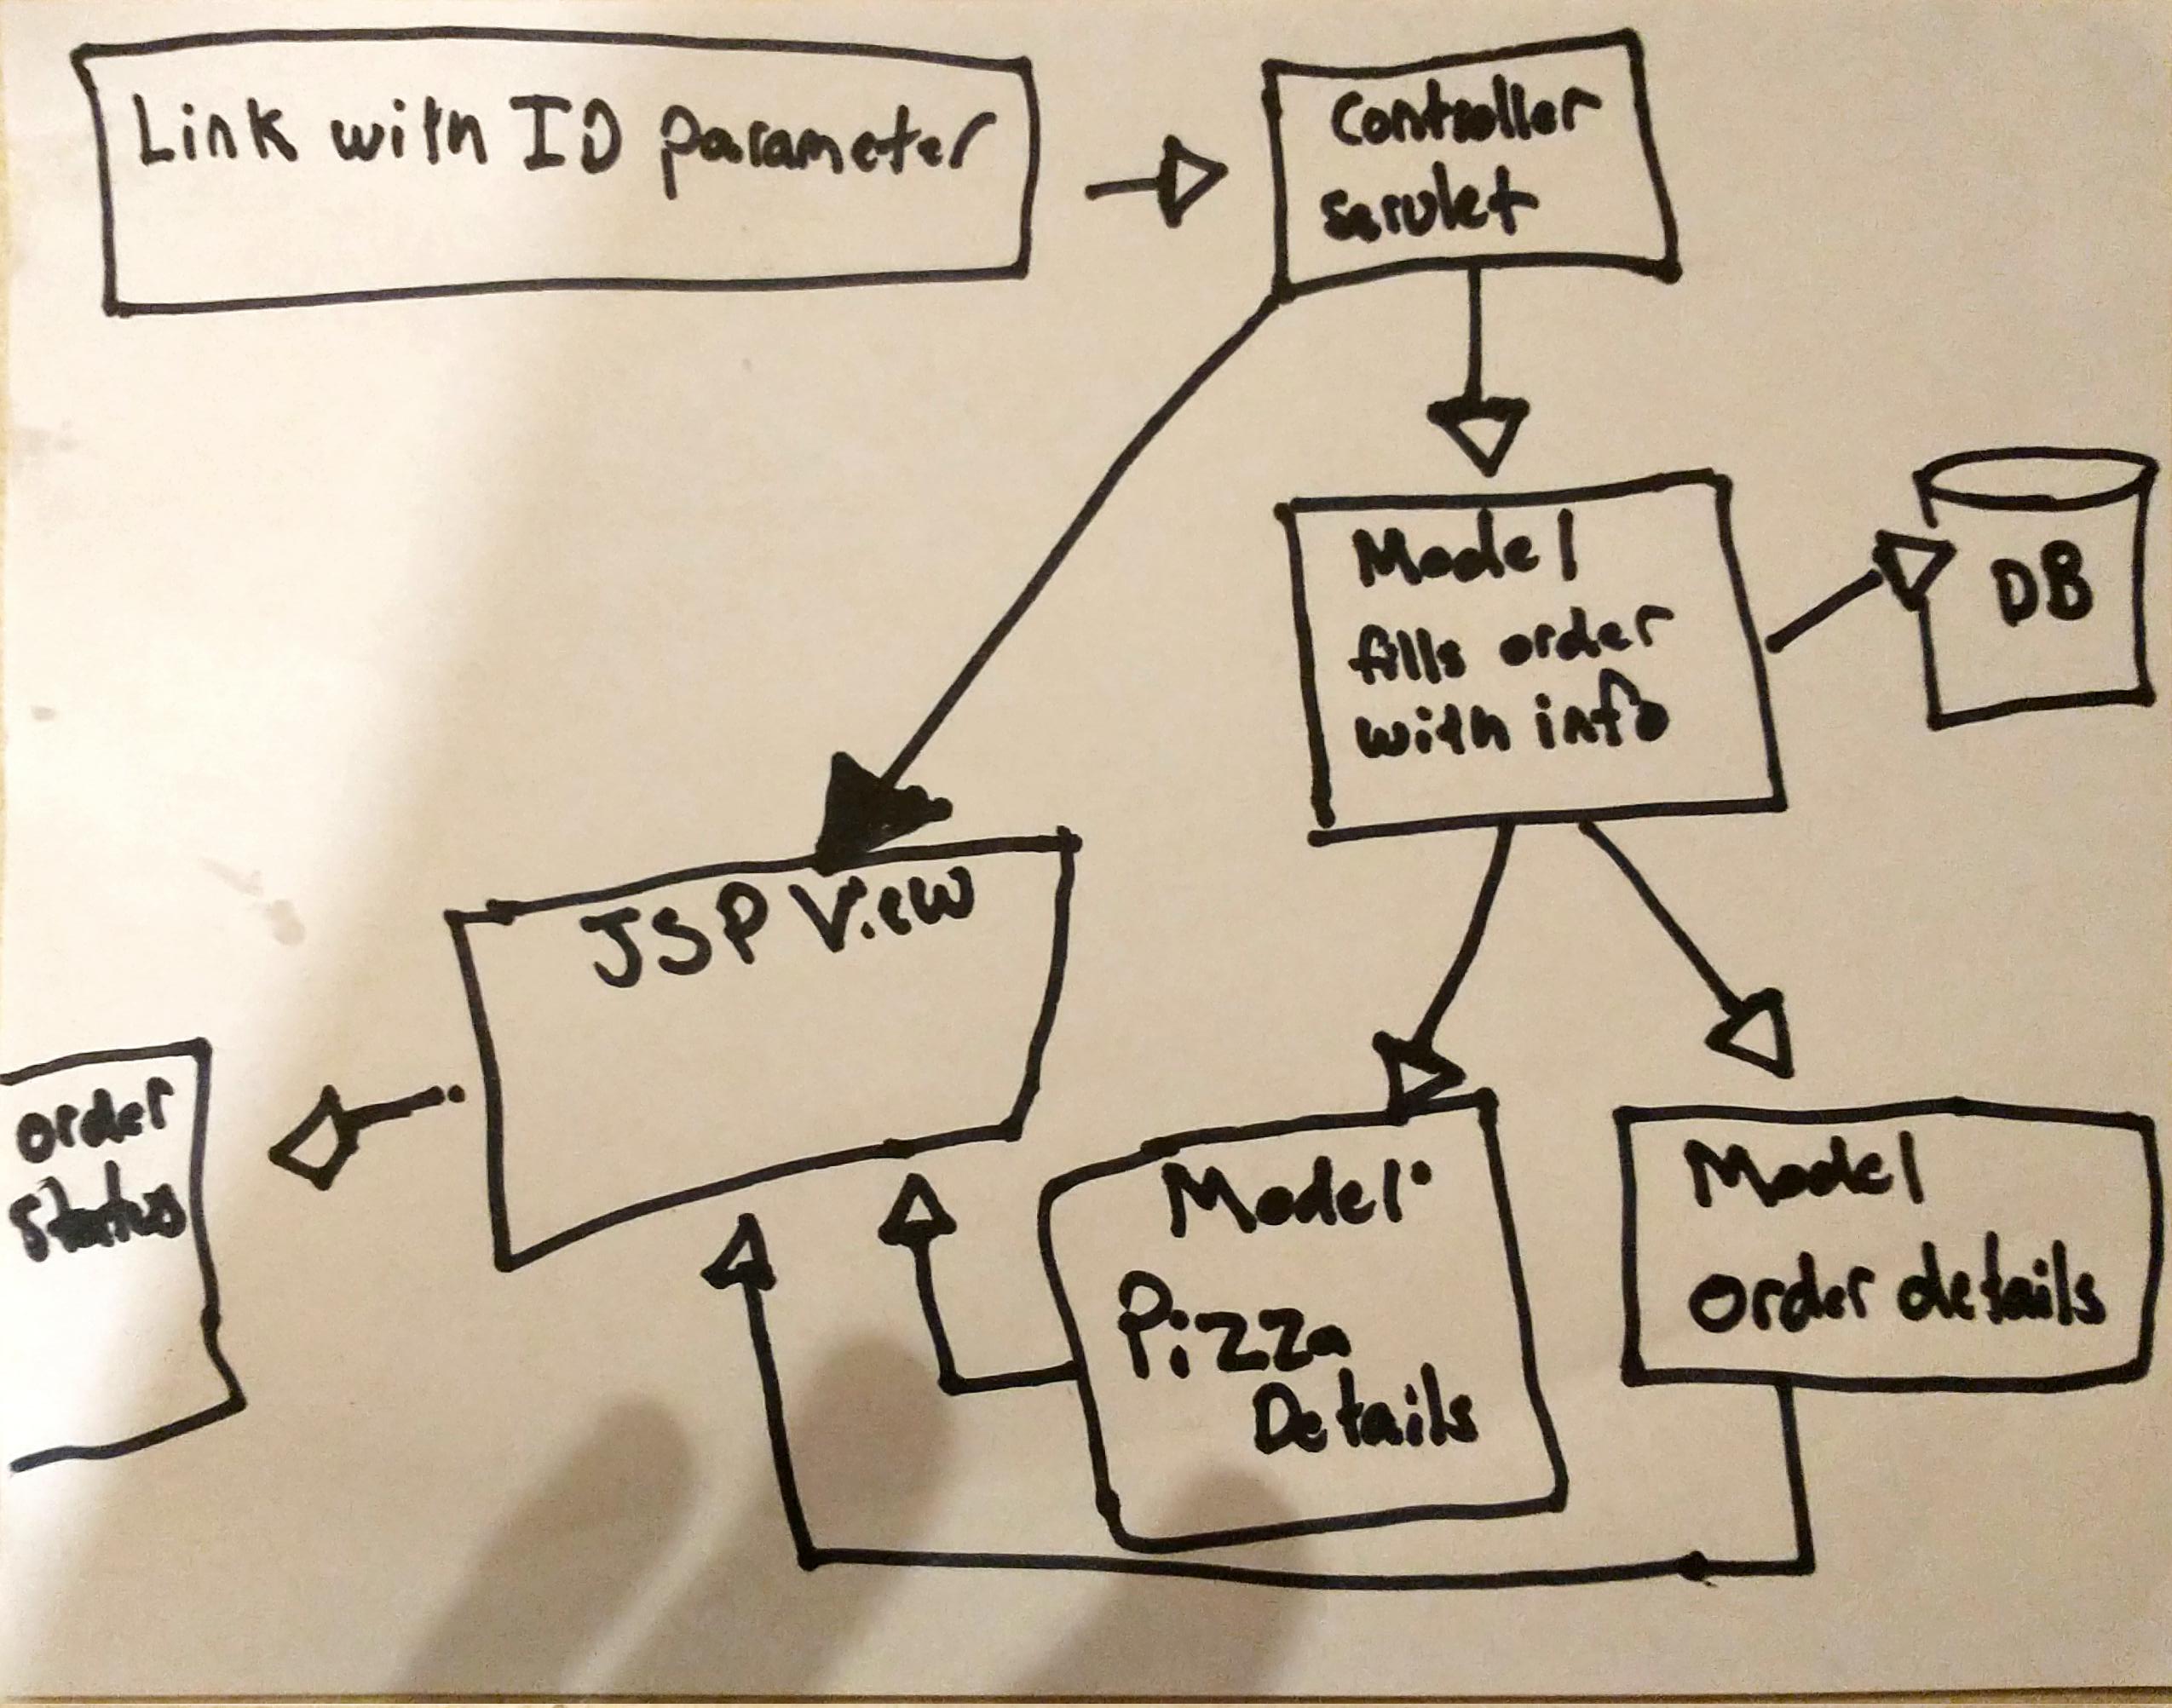 Link with ID parameter
Controller
servlet
Model
fills order
with info
DB
JSP View
order
status
Model
Pizza
Details
Model
order details